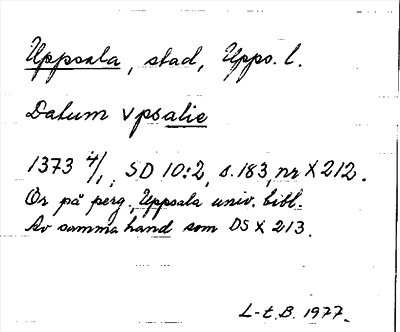 Uppsala, stad, Upps. l.
Datum Vpsalie
1373 4/1, SD 10:2, s. 183, nr X 212.
Or på perg., Uppsala univ. bibl.
Av samma hand som DS X 213.
L-t. B. 1977.